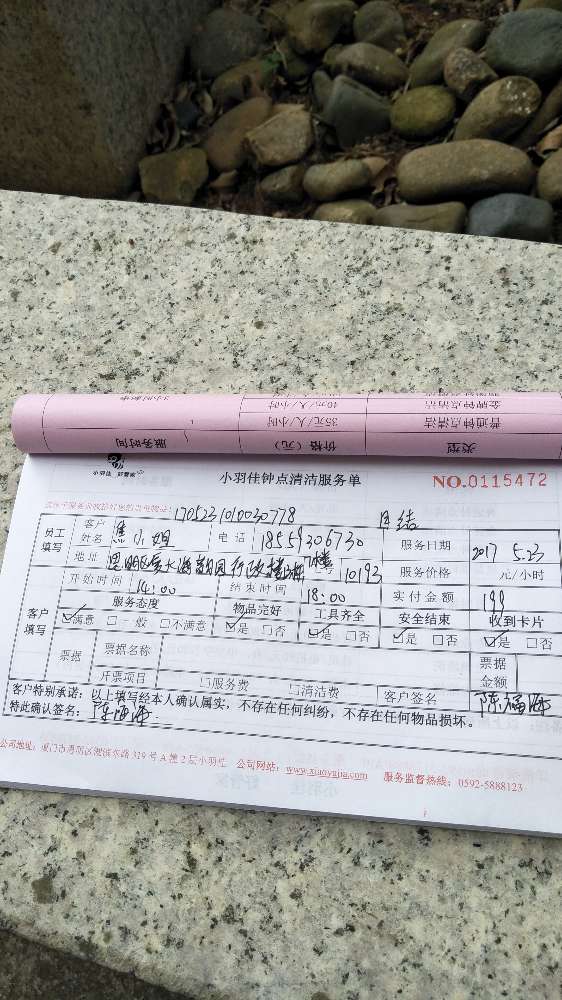 服务时间 价格（元） 类型
35元/人/小时 普通钟点清洁
40元/人/小时 金牌钟点清洁
小羽佳钟点清洁服务单 NO.0115472
1705231010030778 月结
员工填写 客户姓名 焦小姐 电话 18559306730 服务日期 2017 5.23
地址 思明区厦大 号 10193 服务价格 元/小时
开始时间 14:00 结束时间 18:00 实付金额 199
客户填写 服务态度 物品完好 工具齐全 安全结束 收到卡片
☑满意 □一般 □不满意 ☑是 □否 ☑是 □否 ☑是 □否 ☑是 □否
票据 票据名称 票据金额
开票项目 □服务费 □清洁费 客户签名
客户特别承诺：以上填写经本人确认属实，不存在任何纠纷，不存在任何物品损坏。
特此确认签名：
公司地址：厦门市 319号A幢2层小羽佳 公司网站：www.xiaoyujia.com 服务监督热线：0592-5888123